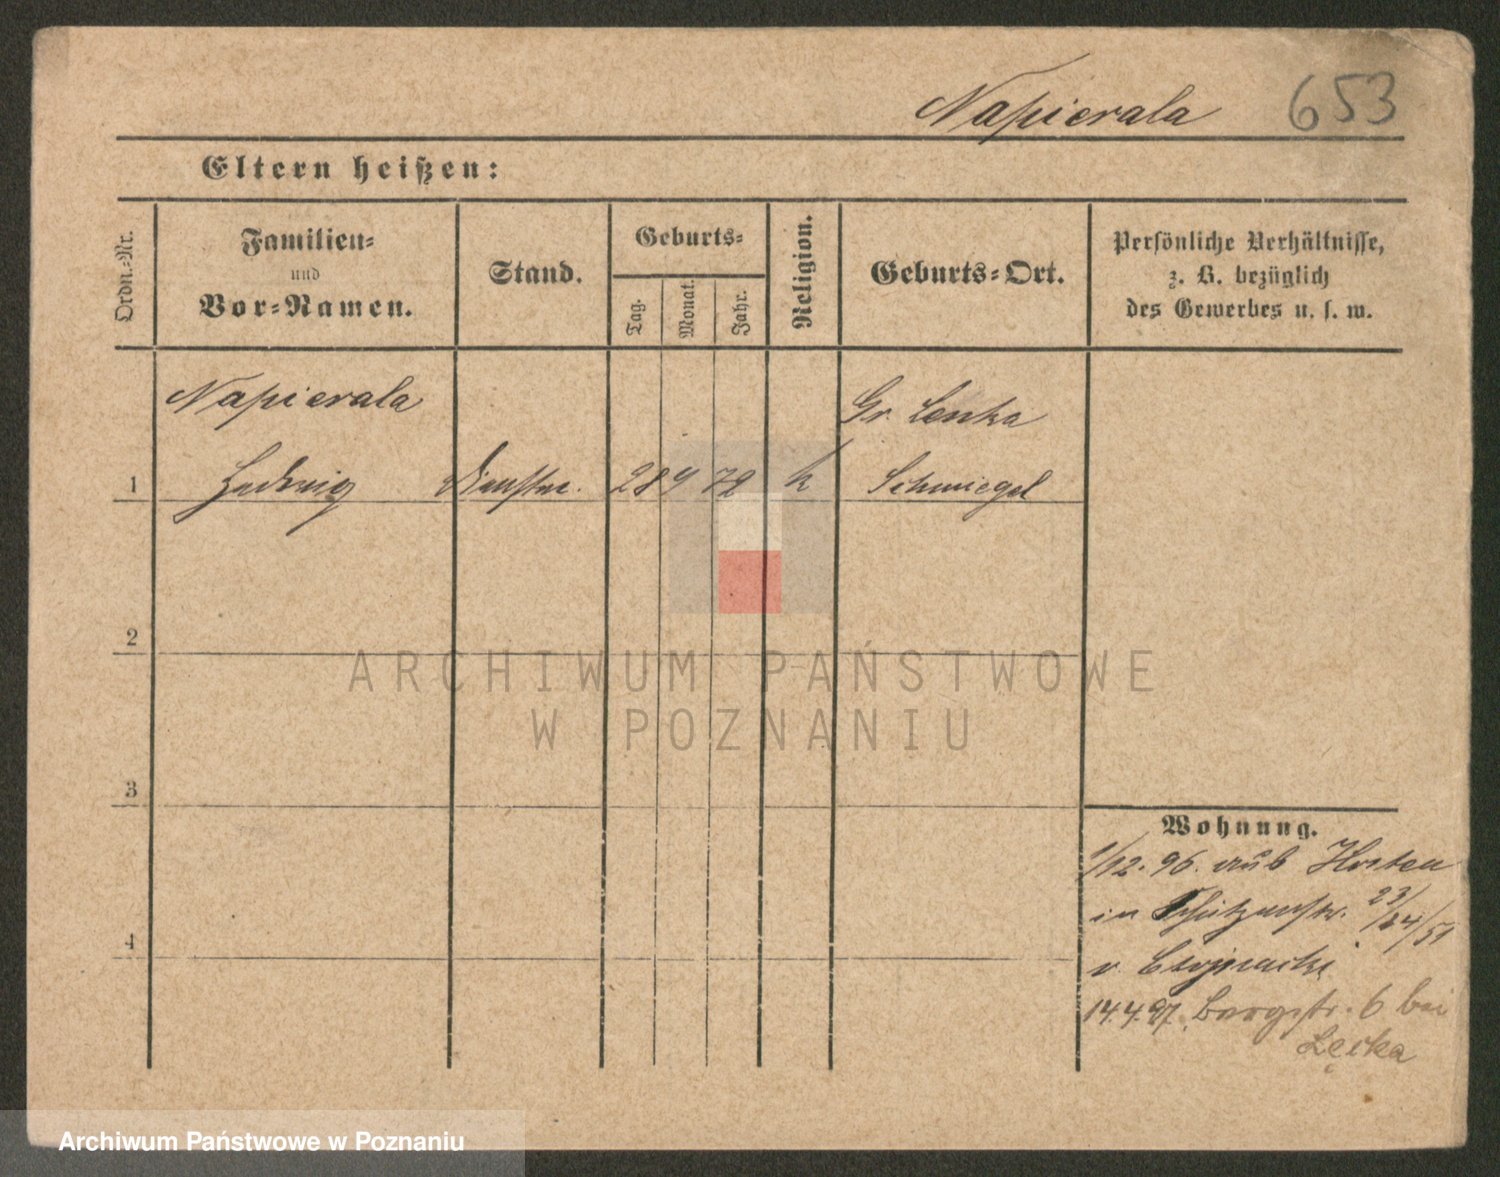 Napierala 653
Eltern heißen:
Ordn.-Nr.
Familien-
und
Vor-Namen.
Stand.
Geburts-
Tag.
Monat.
Jahr.
Religion.
Geburts-Ort.
Persönliche Verhältnisse,
z. B. bezüglich
des Gewerbes u. s. w.
Napierala
Gr. Lenka
1 Hedwig Dienstm. 28 9 72 k Schmiegel
2
ARCHIWUM PAŃSTWOWE
W POZNANIU
3
Wohnung.
1/12. 96. aus Kosten
in Schützenstr. 23/24/51
4
v.
14.4.97. Bergstr. 6 bei
Archiwum Państwowe w Poznaniu